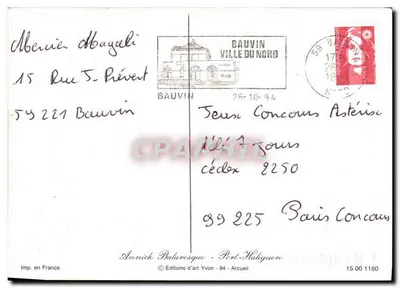 Mercier Magali
15 Rue J. Prévert
59221 Bauvin
BAUVIN
VILLE DU NORD
BAUVIN 26-10-94
59 BAUVIN
Jeux Concours Astérix
Télé 7 jours
Cédex 2250
99 225 Paris Concours
Annick Bataresque - Port-Haliguen
Imp. en France
© Editions d'art Yvon - 94 - Arcueil
15 00 1150